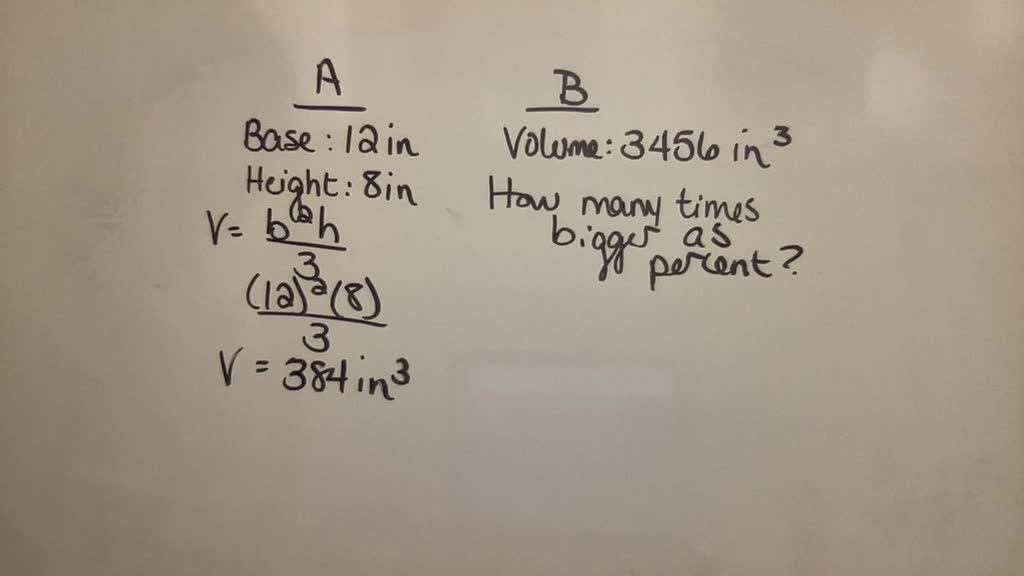 A
Base: 12in
Height: 8in
V= b²h
3
(12)²(8)
3
V = 384in³
B
Volume: 3456 in³
How many times
bigger as
percent?